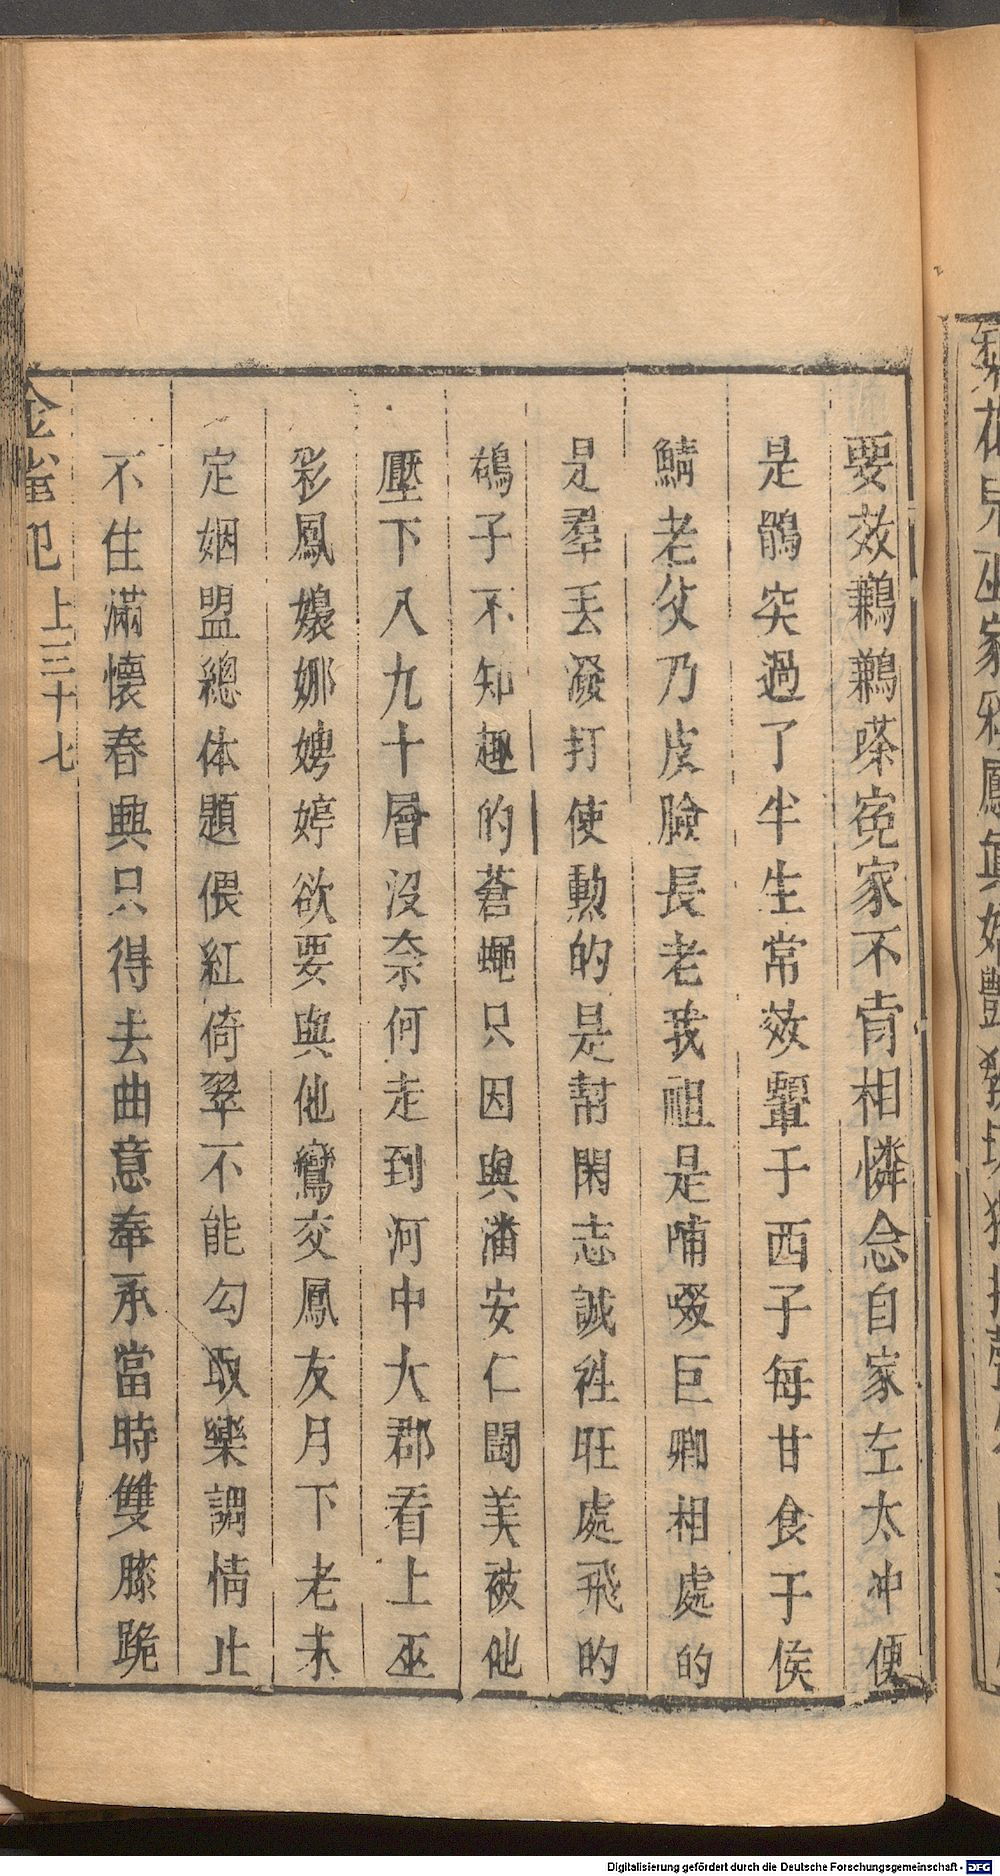 要效鶼鶼㗬寃家不肯相憐念自家左太冲便
是鶻突過了半生常效顰于西子每甘食于侯
鯖老父乃皮臉長老我祖是哺啜巨卿相處的
是羣丟潑打使勲的是幇閑志誠社旺處飛的
鴣子不知趣的蒼蠅只因與潘安仁鬪美被他
壓下八九十層沒奈何走到河中大郡看上巫
彩鳳嬝娜娉婷欲要與他鸞交鳳友月下老未
定姻盟總体題偎紅倚翠不能勾取樂調情止
不住滿懷春興只得去曲意奉承當時雙膝跪
上三十七
Digitalisierung gefördert durch die Deutsche Forschungsgemeinschaft - DFG